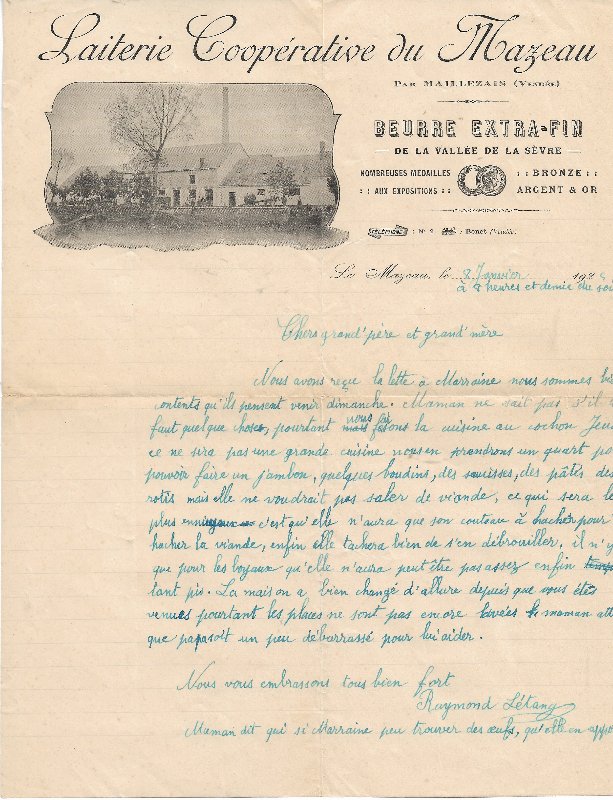 Laiterie Coopérative du Mazeau
Par MAILLEZAIS (Vendée)
BEURRE EXTRA-FIN
DE LA VALLÉE DE LA SÈVRE
NOMBREUSES MÉDAILLES : : BRONZE : :
: : AUX EXPOSITIONS : : ARGENT & OR
TÉLÉPHONE : Nº 2 : Benet (Vendée)
Le Mazeau, le 8 Janvier 192
à 8 heures et demie du soi
Chers grand'père et grand'mère
Nous avons reçu la lette à Marraine nous sommes bi
contents qu'ils pensent venir dimanche. Maman ne sait pas s'il
faut quelque chose, pourtant nous fesons la cuisine au cochon Jeu
ce ne sera pas une grande cuisine nous en prandrons un quart po
pouvoir faire un jambon, quelques boudins, des saucisses, des pâtés des
rotis mais elle ne voudrait pas saler de viande, ce qui sera le
plus ennuyeux c'est qu'elle n'aura que son couteau à hacher pour
hacher la viande, enfin elle tachera bien de s'en débrouiller, il n'y
que pour les boyaux qu'elle n'aura peut être pas assez enfin
tant pis. La maison a bien changé d'allure depuis que vous êtes
venues pourtant les places ne sont pas encore lavées maman att
que papa soit un peu débarrassé pour lui aider.
Nous vous embrassons tous bien fort
Raymond Létang
Maman dit qui si Marraine peu trouver des œufs, qu'elle en appo